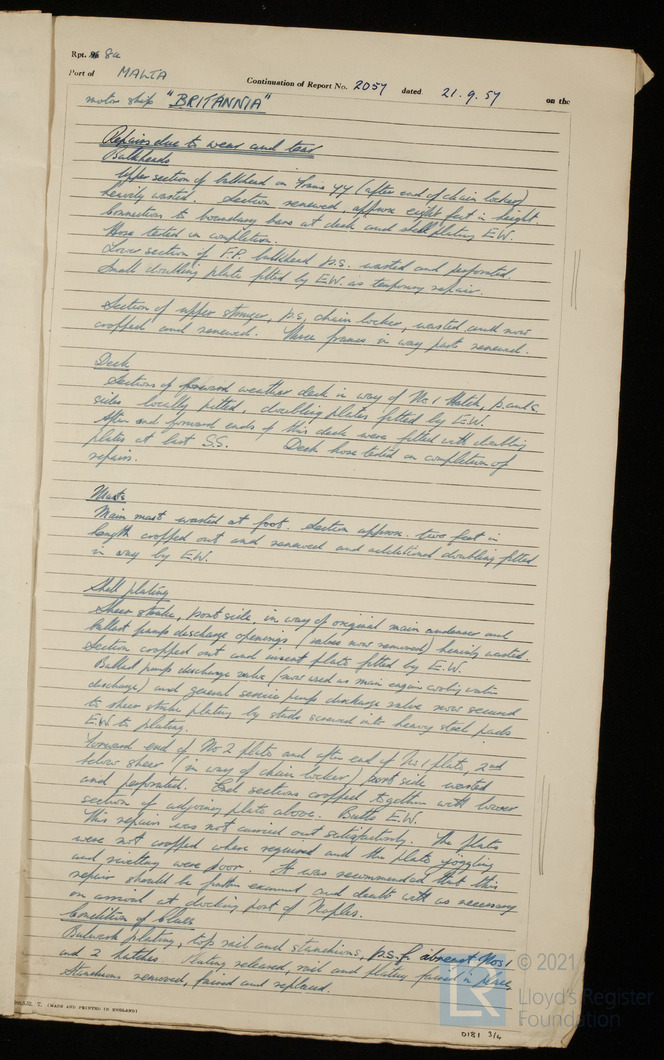 Rpt. 8a
Port of MALTA Continuation of Report No. 2057 dated 21.9.57 on the
motor ship "BRITANNIA"
Repairs due to wear and tear
Bulkheads
Upper section of bulkhead on frame 44 (after end of chain locker)
heavily wasted. Section renewed, approx eight feet in height.
Connection to boundary bars at deck and shell plating E.W.
Hose tested on completion.
Lower section of F.P. bulkhead p.s. wasted and perforated.
Small doubling plate fitted by E.W. as temporary repair.
Section of upper stringer, p.s, chain locker, wasted and now
cropped and renewed. Three frames in way part renewed.
Deck
Sections of forward weather deck in way of No. 1 Hatch, p. and s.
sides locally pitted, doubling plates fitted by E.W.
After and forward ends of this deck were fitted with doubling
plates at last S.S. Deck hose tested on completion of
repairs.
Masts
Main mast wasted at foot. Section approx. two feet in
length cropped out and renewed and additional doubling fitted
in way by E.W.
Shell plating
Sheer strake, port side, in way of original main condenser and
ballast pump discharge openings (valves now removed) heavily wasted.
Section cropped out and insert plate fitted by E.W.
Ballast pump discharge valve (now used as main engine cooling water
discharge) and general service pump discharge valve now secured
to sheer strake plating by studs screwed into heavy steel pads
E.W. to plating.
Forward end of No 2 plate and after end of No. 1 plate, 2nd
below sheer (in way of chain locker) port side wasted
and perforated. End sections cropped together with lower
section of adjoining plate above. Butts E.W.
This repair was not carried out satisfactorily. The plates
were not cropped where required and the plate joggling
and rivetting were poor. It was recommended that this
repair should be further examined and dealt with as necessary
on arrival at docking port of Naples.
Condition of Class
Bulwark plating, top rail and stanchions, p.s. f. abreast Nos. 1
and 2 hatches Plating released, rail and plating faired in place
Stanchions removed, faired and replaced.
(MADE AND PRINTED IN ENGLAND)
© 2021
LR
Lloyd's Register
Foundation
0181 3/4